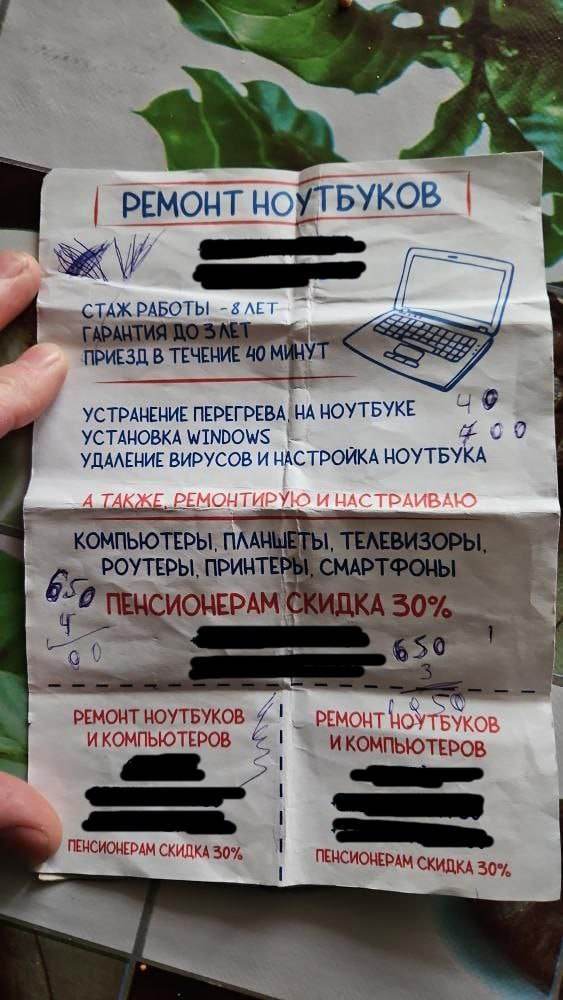 РЕМОНТ НОУТБУКОВ
СТАЖ РАБОТЫ - 8 ЛЕТ
ГАРАНТИЯ ДО 3 ЛЕТ
ПРИЕЗД В ТЕЧЕНИЕ 40 МИНУТ
УСТРАНЕНИЕ ПЕРЕГРЕВА, НА НОУТБУКЕ
40
УСТАНОВКА WINDOWS
700
УДАЛЕНИЕ ВИРУСОВ И НАСТРОЙКА НОУТБУКА
А ТАКЖЕ, РЕМОНТИРУЮ И НАСТРАИВАЮ
КОМПЬЮТЕРЫ, ПЛАНШЕТЫ, ТЕЛЕВИЗОРЫ,
РОУТЕРЫ, ПРИНТЕРЫ, СМАРТФОНЫ
650
4
00
ПЕНСИОНЕРАМ СКИДКА 30%
650
3
1950
РЕМОНТ НОУТБУКОВ
И КОМПЬЮТЕРОВ
ПЕНСИОНЕРАМ СКИДКА 30%
РЕМОНТ НОУТБУКОВ
И КОМПЬЮТЕРОВ
ПЕНСИОНЕРАМ СКИДКА 30%